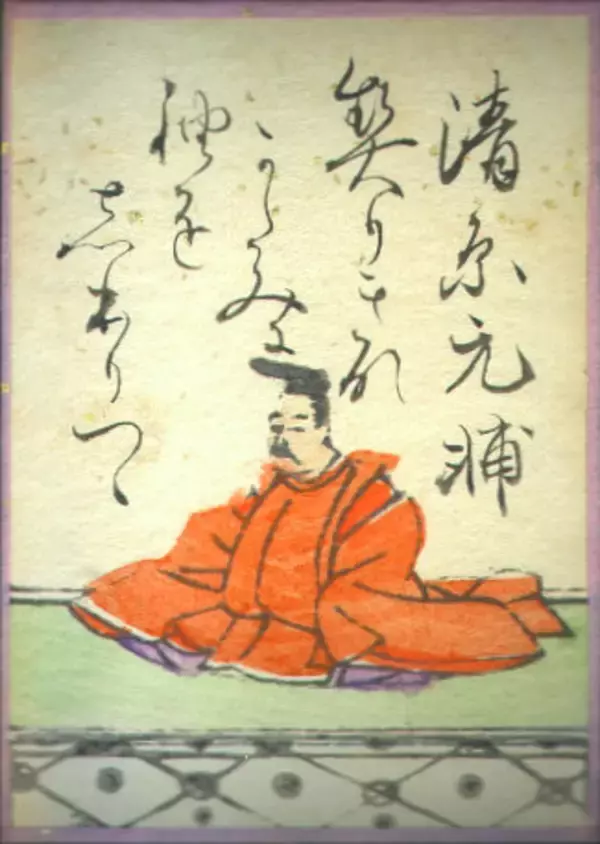 清原元輔
契りきな
かたみに
袖を
志本りつゝ